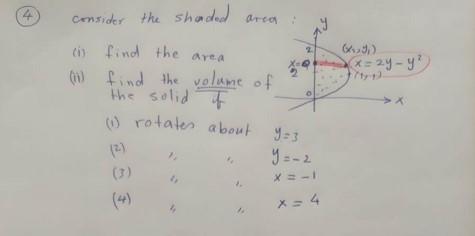 ④ consider the shaded area :
(i) find the area
(ii) find the volume of
the solid if
(1) rotates about y=3
(2) ,, ,, y=-2
(3) ,, ,, x=-1
(4) ,, ,, x=4
y
2
(x₁,y₁)
x = 2y - y²
2
(1,1)
0
x